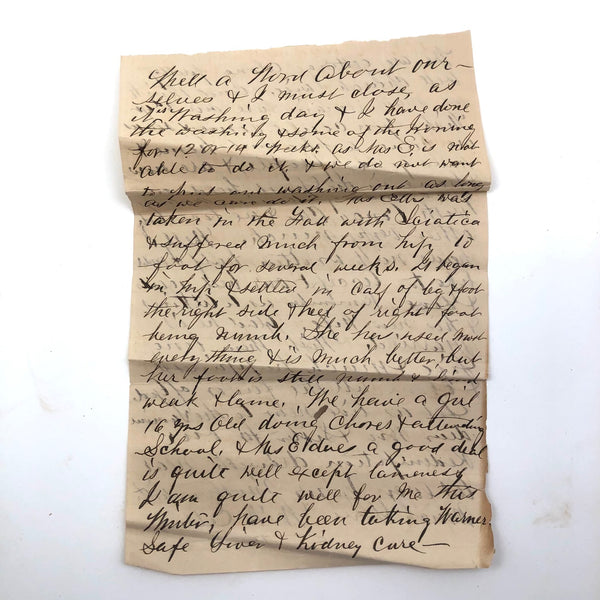 Well a Word About our-
selves & I must close, as
it is Washing day & I have done
the washing & some of the Ironing
for 12 or 14 Weeks. as Mrs E. is not
able to do it. & we do not want
to our washing out as long
as we can do it. Mrs was
taken in the Fall with Sciatica
& suffered much from hip to
foot for several weeks. It began
in hip & settled in calf of leg & foot
the right side & heel of right foot
being numb. She has used most
everything & is much better, but
her foot is still numb & kind
weak & lame. We have a girl
16 yrs old doing Chores & attending
School, & Mrs E does a good deal
is quite well except lameness
I am quite well for Me this
Winter, have been taking Warner
Safe Liver & Kidney Cure-